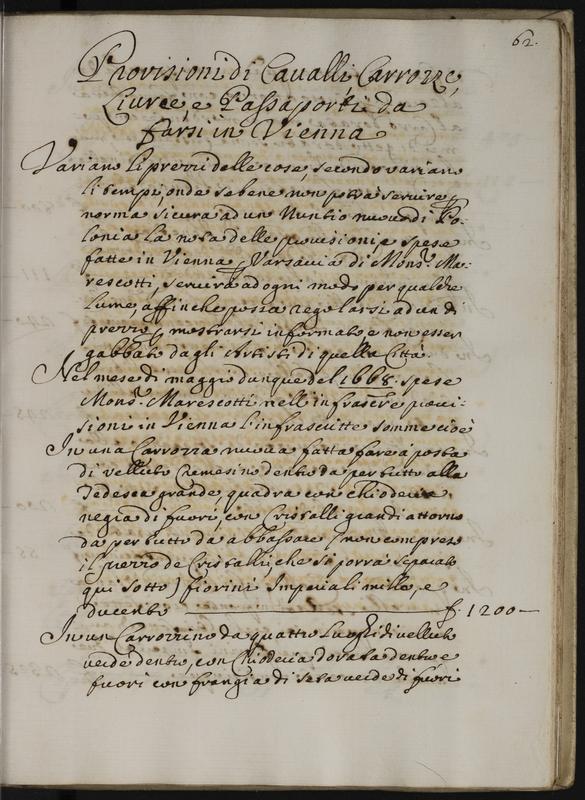 62.
Provisioni di Cavalli, Carrozze,
Livreé, e Passaporti da
farsi in Vienna
Variano li prezzi delle cose, secondo variano
li tempi, onde se bene non potrà servire p
norma sicura ad un Nuntio nuovo di Po-
lonia la nota delle provisioni, e spese
fatte in Vienna p Varsavia di Mons.r Ma-
rescotti, servirà ad ogni modo per qualche
lume, affinche possa regolarsi ad un di
prezzo, mostrarsi informato, e non esser
gabbato dagli Artisti di quella Città.
Nel mese di maggio dunque del 1668. spese
Mons.r Marescotti nell'infrascrẽ provi-
sioni in Vienna l'infrascritte somme cioè
In una Carrozza nuova fatta fare à posta
di velluto Cremesino dentro da per tutto alla
Tedesca grande, quadra con chioderia
negra di fuori, con Cristalli grandi attorno
da per tutto da abbassare (non compreso
il prezzo de Cristalli, che si porrà separato
qui sotto) fiorini Imperiali mille, e
ducento f. 1200
In un Carrozzino da quattro luoghi di velluto
verde dentro, con Chioderia dorata dentro e
fuori con frangia di seta verde di fuori